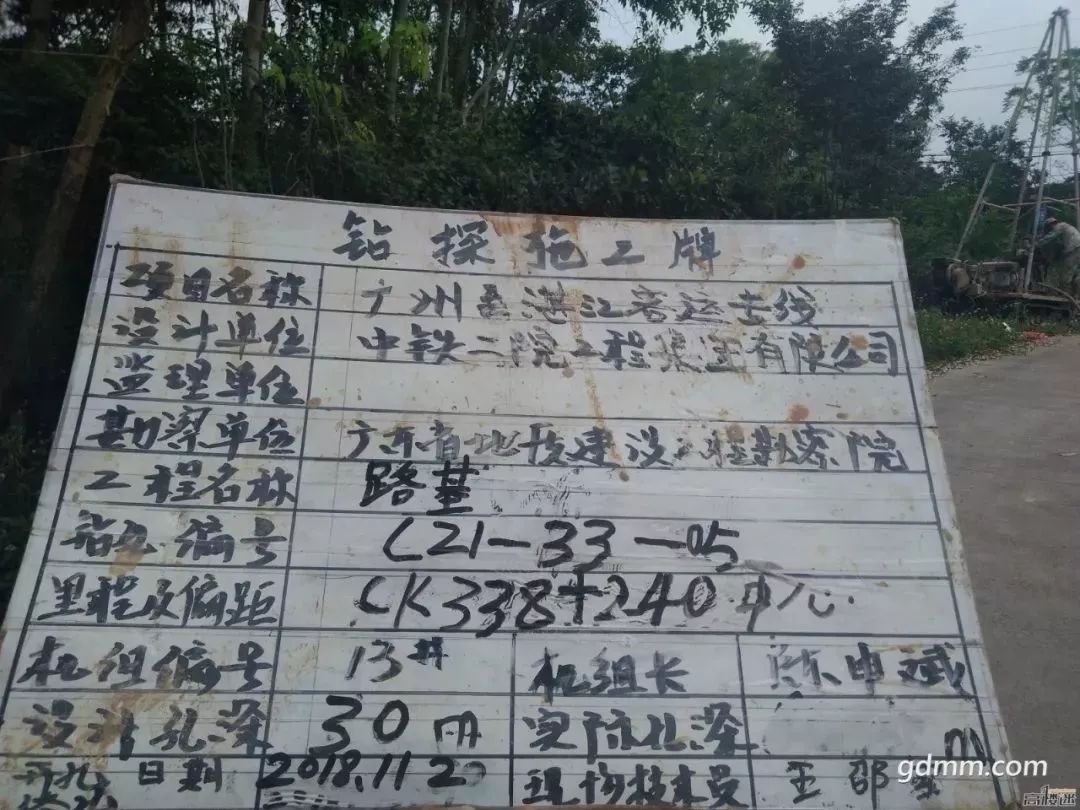 钻探施工牌
项目名称 广州至湛江客运专线
设计单位 中铁二院工程集团有限公司
监理单位
勘察单位 广东省地质建设工程勘察院
工程名称 路基
钻孔编号 C21-33-05
里程及偏距 CK338+240
机组编号 13# 机组长 陈申斌
设计孔深 30m 实际孔深 m
开孔日期 2018.11 现场技术员 王邵
gdmm.com
高楼迷